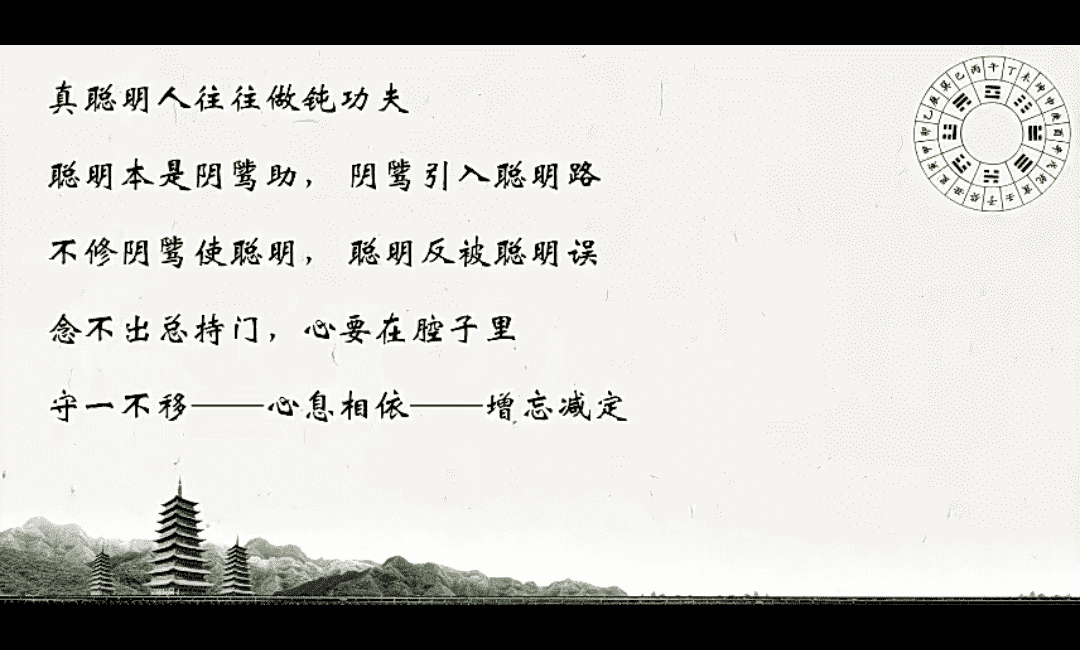 真聪明人往往做钝功夫
聪明本是阴骘助，阴骘引入聪明路
不修阴骘使聪明，聪明反被聪明误
念不出总持门，心要在腔子里
守一不移——心息相依——增忘减定